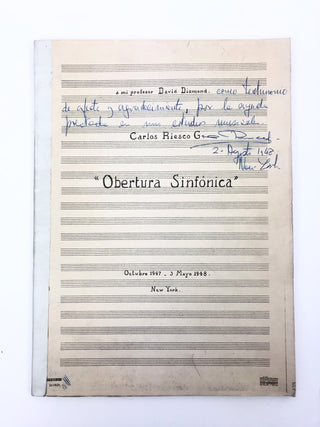 a mi profesor David Diamond. como testimonio
de afecto y agradecimiento, por la ayuda
prestada en mis estudios musicales
Carlos Riesco G
2-Agosto 1948
New York
"Obertura Sinfónica"
Octubre 1947 - 3 Mayo 1948.
New York.